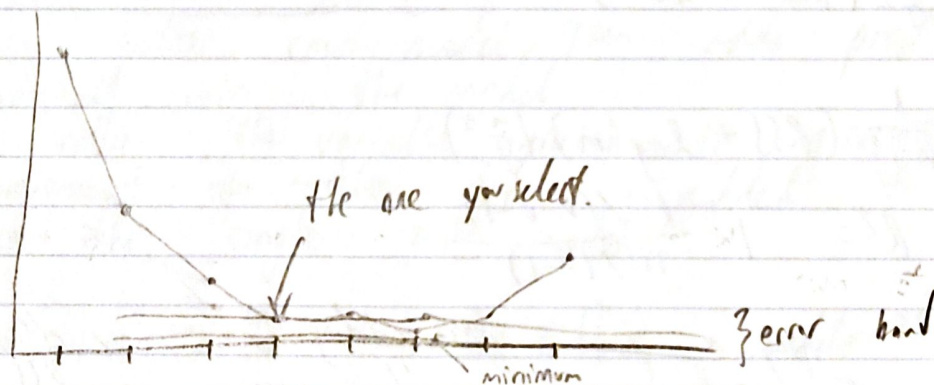 the one you select.
} error band
minimum